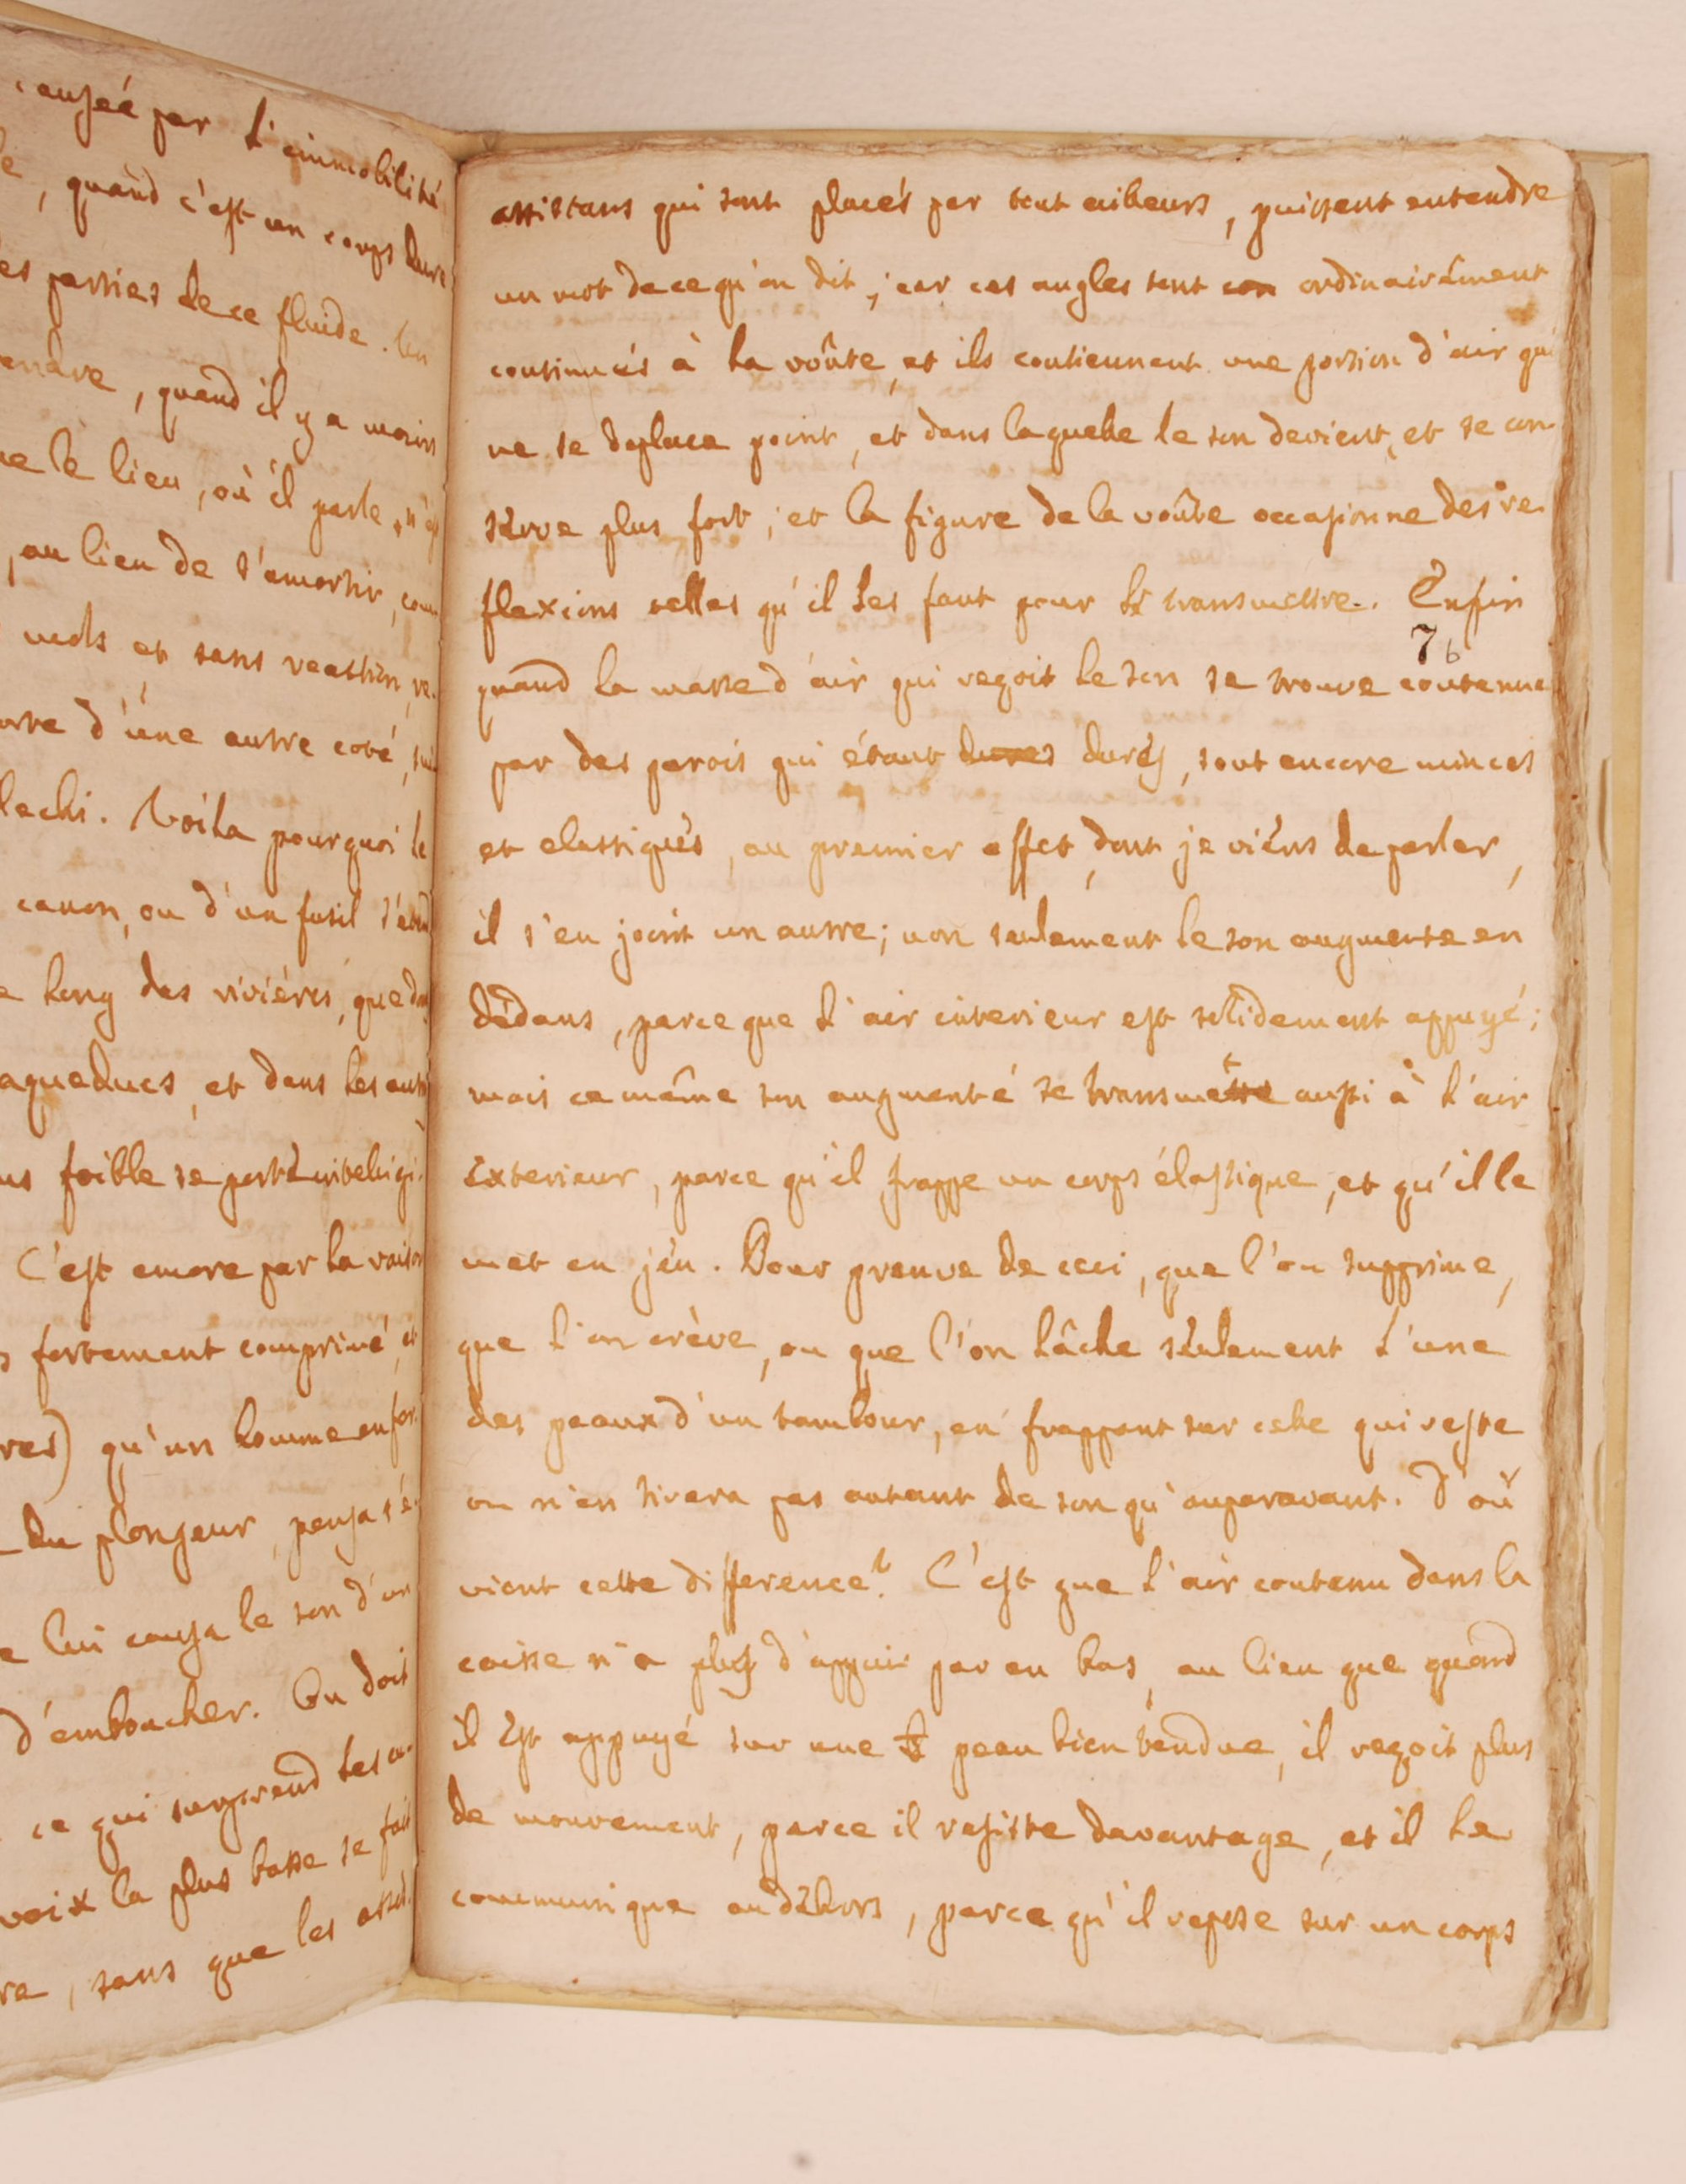 causée par l'immobilité
, quand c'est un corps dure
es parties de ce fluide. Un
endre, quand il y a moins
le lieu, où il parle, n'es
, au lieu de s'amortir, com
mols et sans reaction, re-
d'une autre coté,
lachi. Voila pourquoi le
canon, ou d'un fusil s'étend
long des riviéres, que dans
aqueducs, et dans les aut
us foible se porte intelligi-
C'est encore par la raison
s fortement comprimé, et
res) qu'un homme enfer-
du plongeur, pensa s'é-
lui causa le son d'un
d'emboucher. On doit
ce qui surprend les
voix la plus basse se fait
re, sans que les assis-
assistans qui sont placés par tout ailleurs, puissent entendre
un mot de ce qu'on dit; car ces angles sont con ordinairément
continués à la voûte, et ils contiennent une portion d'air qui
ne se deplace point, et dans laquelle le son devient, et se con-
sérve plus fort; et la figure de la voûte occasionne des re-
flexions telles qu'il les faut pour le transmettre. Enfin
76
quand la masse d'air qui reçoit le son se trouve contenue
par des parois qui étant dures durés, sont encore minces
et elastiqués, au premier effet, dont je viéns de parler,
il s'en joint un autre; non seulement le son augmente en
dédans, parce que l'air interieur est solidement appuyé;
mais ce même son augmenté se transmet aussi à l'air
éxterieur, parce qu'il frappe un corps élastique, et qu'il le
met en jéu. Pour preuve de ceci, que l'on supprime,
que l'on crève, ou que l'on lâche séulement l'une
des peaux d'un tambour, en frappant sur celle qui reste
on n'en tirera pas autant de son qu'auparavant. D'où
vient cette difference? C'est que l'air contenu dans la
caisse n'a plus d'appui par en bas, au lieu que quand
il est appuyé sur une peau bien tendue, il reçoit plus
de mouvement, parce il resiste davantage, et il le
communique au déhors, parce qu'il repose sur un corps